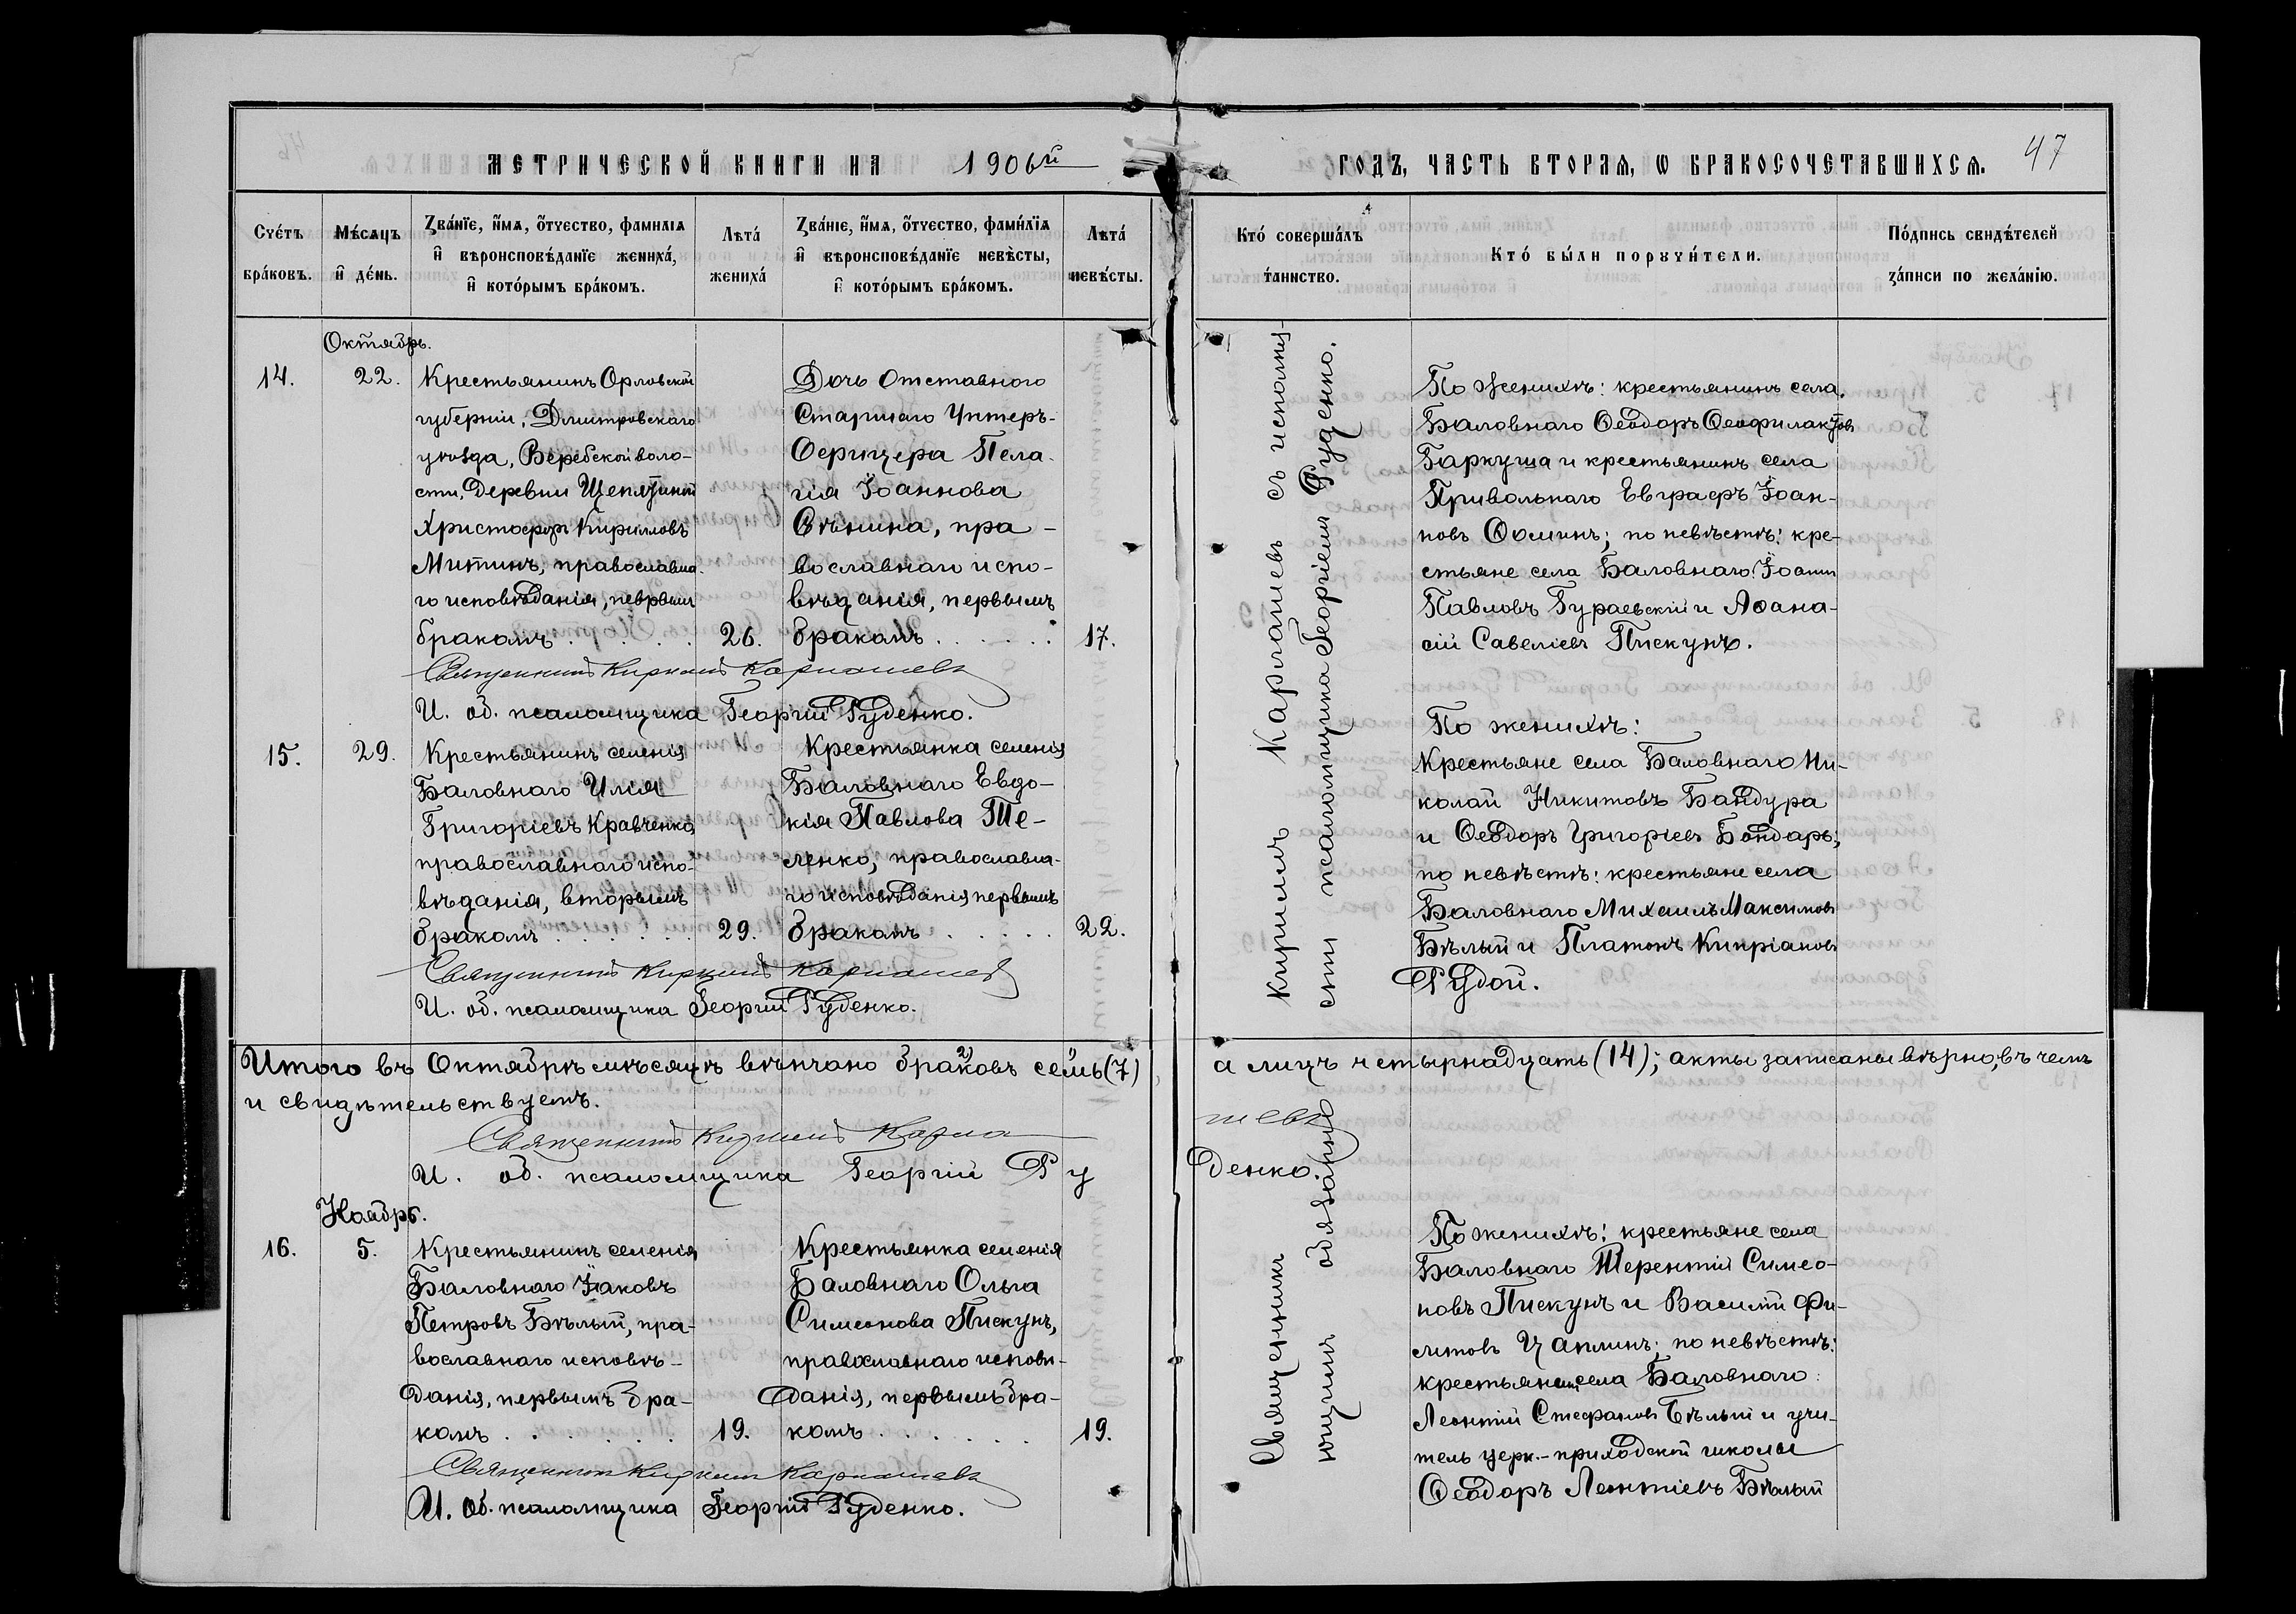 МЕТРИЧЕСКОЙ КНИГИ НА 1906й
ГОДЪ, ЧАСТЬ ВТОРАЯ, Ѡ БРАКОСОЧЕТАВШИХСЯ. 47
Счетъ браковъ.
Мѣсяцъ и день.
Званіе, имя, отчество, фамилія
и вѣроисповѣданіе жениха,
и которымъ бракомъ.
Лѣта
жениха
Званіе, имя, отчество, фамилія
и вѣроисповѣданіе невѣсты,
и которымъ бракомъ.
Лѣта
невѣсты.
Кто совершалъ
таинство.
Кто были поручители.
Подпись свидѣтелей
записи по желанію.
Октябрь.
14.
22.
Крестьянинъ Орловской
губерніи, Дмитровскаго
уѣзда, Веребской воло-
сти, деревни
Христофоръ Кирилловъ
Митинъ, православна-
го исповѣданія, первымъ
бракомъ . . . .
26.
Дочь Отставного
Старшаго Унтеръ-
Офицера Пела-
гія Іоаннова
пра-
вославнаго испо-
вѣданія, первымъ
бракомъ . . . . .
17.
По женихѣ: крестьянинъ села
Баловнаго Ѳеодоръ Ѳеофилактовъ
Баркуша и крестьянинъ села
Привольнаго Евграфъ Іоан-
новъ Ѳоминъ; по невѣстѣ: кре-
стьяне села Баловнаго Іоаннъ
Павловъ Гураевскій и Аѳана-
сій Савеліевъ Пискунъ.
Священникъ Кириллъ Карпашевъ
И. об. псаломщика Георгій Руденко.
15.
29.
Крестьянинъ селенія
Баловнаго Илія
Григоріевъ Кравченко,
православнаго испо-
вѣданія, вторымъ
бракомъ . . . . .
29.
Крестьянка селенія
Баловнаго Евдо-
кія Павлова Те-
ленко, православна-
го исповѣданія первымъ
бракомъ . . . . .
22.
По женихѣ:
Крестьяне села Баловнаго Ни-
колай Никитовъ Бандура
и Ѳеодоръ Григоріевъ Бондарь;
по невѣстѣ: крестьяне села
Баловнаго Михаилъ Максимовъ
Бѣлый и Платонъ Кипріановъ
Рудой.
Священникъ Кириллъ Карпашевъ
И. об. псаломщика Георгій Руденко.
Итого въ Октябрѣ мѣсяцѣ вѣнчано браковъ семь (7)
а лицъ четырнадцать (14); акты записаны вѣрно, въ чемъ
и свидѣтельствуемъ.
Священникъ Кириллъ Карпашевъ
И. об. псаломщика Георгій Руденко
Ноябрь.
16.
5.
Крестьянинъ селенія
Баловнаго Іаковъ
Петровъ Бѣлый, пра-
вославнаго исповѣ-
данія, первымъ бра-
комъ . . . . . .
19.
Крестьянка селенія
Баловнаго Ольга
Симеонова Пискунъ,
православнаго исповѣ-
данія, первымъ бра-
комъ . . . . . .
19.
По женихѣ: крестьяне села
Баловнаго Терентій Симео-
новъ Пискунъ и Василій Фи-
Чаплинъ; по невѣстѣ:
села Баловнаго:
Леонтій Стефановъ Бѣлый и учи-
тель церк.-приходской школы
Ѳеодоръ Леонтіевъ Бѣлый
Священникъ Кириллъ Карпашевъ
И. об. псаломщика Георгій Руденко.
Священникъ Кириллъ Карпашевъ съ исполня-
ющимъ обязанно сти псаломщика Георгіемъ Руденко.